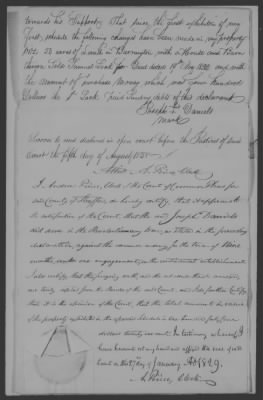 towards his support. That since the first exhibition of my
first schedule the following changes have been made in my property
viz. 23 acres of Land in Barrington with a House and Barn
thereon Sold Samuel Hook for Deed dated 19th Nov 1820 and with
the amount of purchase Money which was Four Hundred
Dollars he Sd Hook Paid Sundry debts of this declarant
Joseph Daniels
mark
Sworn to and declared in open court before the Justices of said
Court the fifth day of August 1828
Attest A. Peirce Clerk
I Andrew Peirce Clerk of the Court of Common Pleas for
said County of Strafford, do hereby certify, that it appears to
the satisfaction of the Court, that the said Joseph Daniels
did serve in the Revolutionary War, as stated in the preceding
declaration, against the common enemy, for the term of Nine
months, under one engagement, on the continental establishment
I also certify that the foregoing oath, and the
are truly copied from the Records of the said Court; and I do further Certify
that it is the opinion of the Court, that the total amount in value
of the property exhibited in the aforesaid schedule is One hundred forty five
dollars twenty six cents. In testimony whereof, I
have hereunto set my hand and affixed the seal of said
Court on this day of January AD 1829.
A. Peirce Clerk